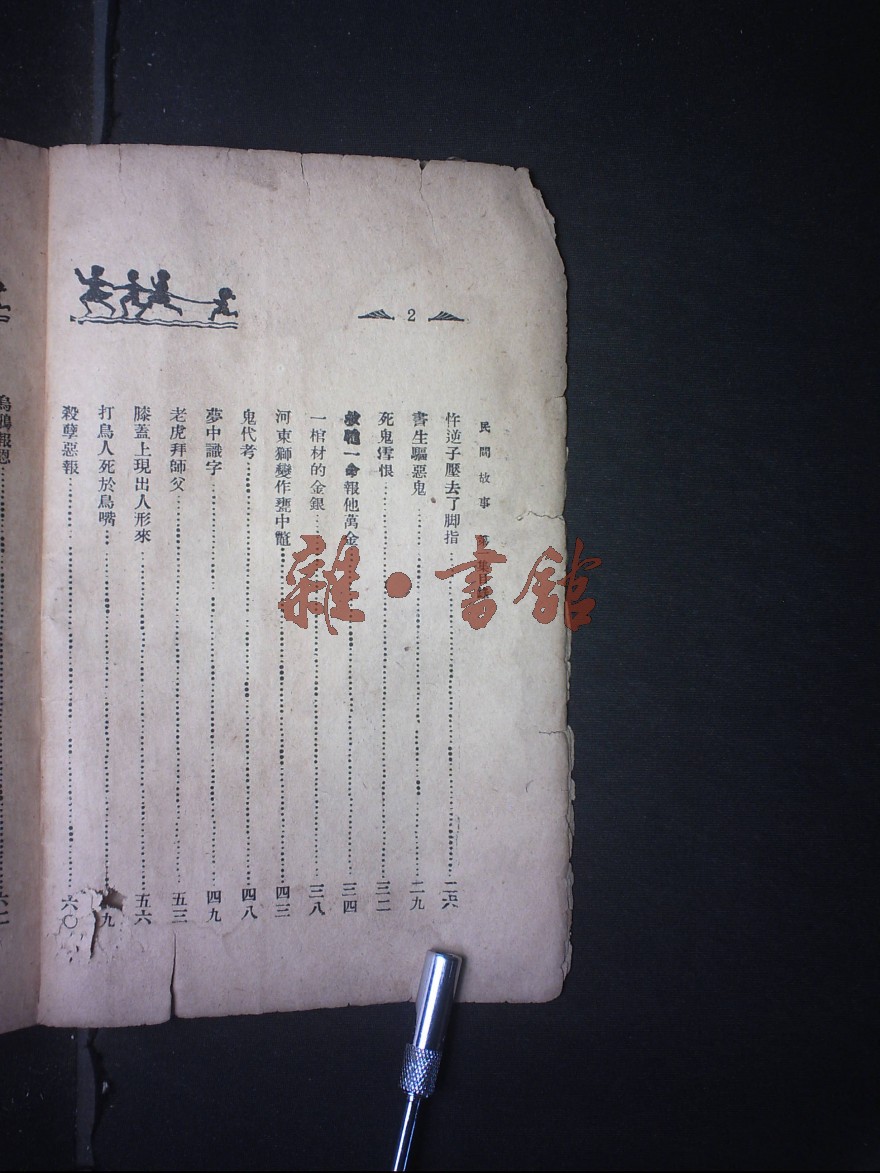 2
民間故事 集目
忤逆子壓去了脚指 二六
書生驅惡鬼 二九
死鬼雪恨 三二
救 一命報他萬金 三四
一棺材的金銀 三八
河東獅變作甕中鼈 四三
鬼代考 四八
夢中識字 四九
老虎拜師父 五三
膝蓋上現出人形來 五六
打鳥人死於鳥嘴 九
殺孽惡報 六〇
烏鴉報恩 六二
雜·書館